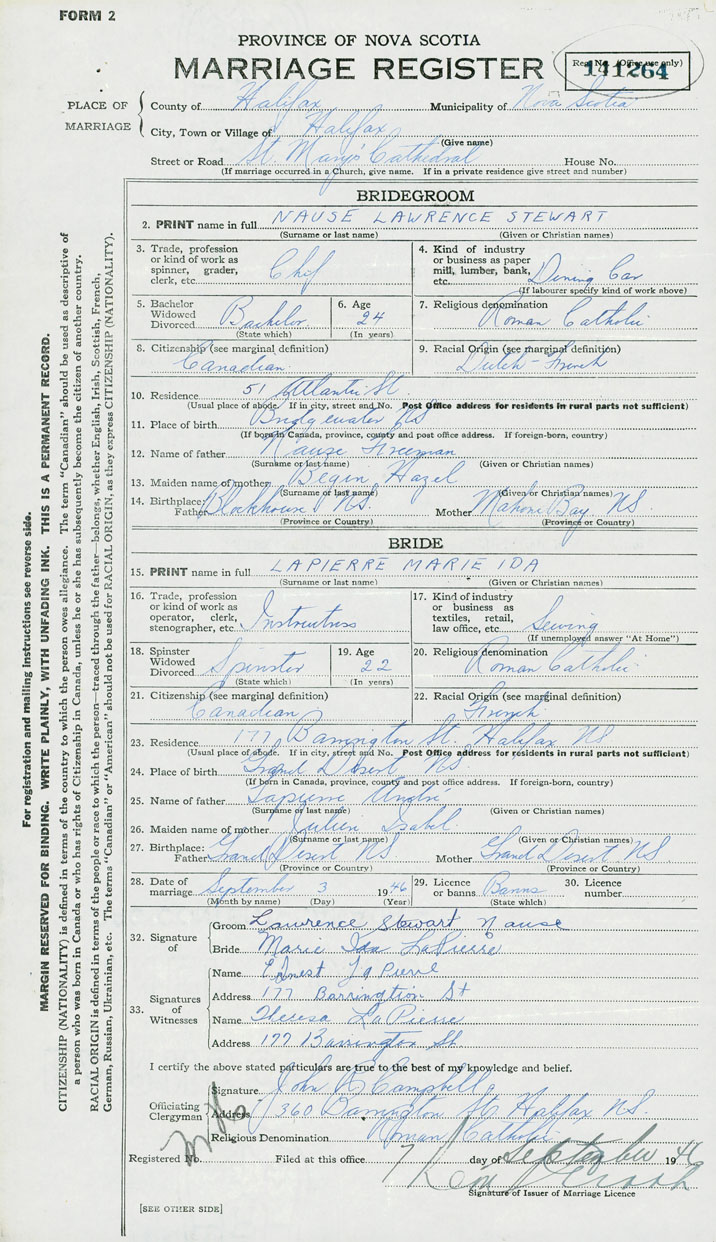 FORM 2
PROVINCE OF NOVA SCOTIA
MARRIAGE REGISTER
Reg. No. (Office use only)
141264
PLACE OF MARRIAGE
County of Halifax Municipality of Nova Scotia
City, Town or Village of Halifax
(Give name)
Street or Road St. Mary's Cathedral House No.
(If marriage occurred in a Church, give name. If in a private residence give street and number)
BRIDEGROOM
2. PRINT name in full NAUSE LAWRENCE STEWART
(Surname or last name) (Given or Christian names)
3. Trade, profession or kind of work as spinner, grader, clerk, etc. Chef
4. Kind of industry or business as paper mill, lumber, bank, etc. Dining Car
(If labourer specify kind of work above)
5. Bachelor Widowed Divorced Bachelor
(State which)
6. Age 24
(In years)
7. Religious denomination Roman Catholic
8. Citizenship (see marginal definition) Canadian
9. Racial Origin (see marginal definition) Dutch-French
10. Residence 51 Atlantic St.
(Usual place of abode. If in city, street and No. Post Office address for residents in rural parts not sufficient)
11. Place of birth Bridgewater NS
(If born in Canada, province, county and post office address. If foreign-born, country)
12. Name of father Nause Freeman
(Surname or last name) (Given or Christian names)
13. Maiden name of mother Begin Hazel
(Surname or last name) (Given or Christian names)
14. Birthplace: Father Blockhouse NS. Mother Mahone Bay NS.
(Province or Country) (Province or Country)
BRIDE
15. PRINT name in full LAPIERRE MARIE IDA
(Surname or last name) (Given or Christian names)
16. Trade, profession or kind of work as operator, clerk, stenographer, etc. Instructress
17. Kind of industry or business as textiles, retail, law office, etc. Sewing
(If unemployed answer "At Home")
18. Spinster Widowed Divorced Spinster
(State which)
19. Age 22
(In years)
20. Religious denomination Roman Catholic
21. Citizenship (see marginal definition) Canadian
22. Racial Origin (see marginal definition) French
23. Residence 177 Barrington St. Halifax NS
(Usual place of abode. If in city, street and No. Post Office address for residents in rural parts not sufficient)
24. Place of birth Grand Desert NS
(If born in Canada, province, county and post office address. If foreign-born, country)
25. Name of father Lapierre
(Surname or last name) (Given or Christian names)
26. Maiden name of mother Julien Isabel
(Surname or last name) (Given or Christian names)
27. Birthplace: Father Grand Desert NS Mother Grand Desert NS.
(Province or Country) (Province or Country)
28. Date of marriage September 3 1946
(Month by name) (Day) (Year)
29. Licence or banns Banns
(State which)
30. Licence number
32. Signature of
Groom Lawrence Stewart Nause
Bride Marie Ida LaPierre
33. Signatures of Witnesses
Name Ernest LaPierre
Address 177 Barrington St
Name Theresa LaPierre
Address 177 Barrington St.
I certify the above stated particulars are true to the best of my knowledge and belief.
Officiating Clergyman
Signature John R Campbell
Address 360 Barrington St. Halifax NS
Religious Denomination Roman Catholic
Registered No. Filed at this office 7 day of September 1946
Signature of Issuer of Marriage Licence
[SEE OTHER SIDE]
For registration and mailing instructions see reverse side.
MARGIN RESERVED FOR BINDING. WRITE PLAINLY, WITH UNFADING INK. THIS IS A PERMANENT RECORD.
CITIZENSHIP (NATIONALITY) is defined in terms of the country to which the person owes allegiance. The term "Canadian" should be used as descriptive of
a person who was born in Canada or who has rights of Citizenship in Canada, unless he or she has subsequently become the citizen of another country.
RACIAL ORIGIN is defined in terms of the people or race to which the person—traced through the father—belongs, whether English, Irish, Scottish, French,
German, Russian, Ukrainian, etc. The terms "Canadian" or "American" should not be used for RACIAL ORIGIN, as they express CITIZENSHIP (NATIONALITY).